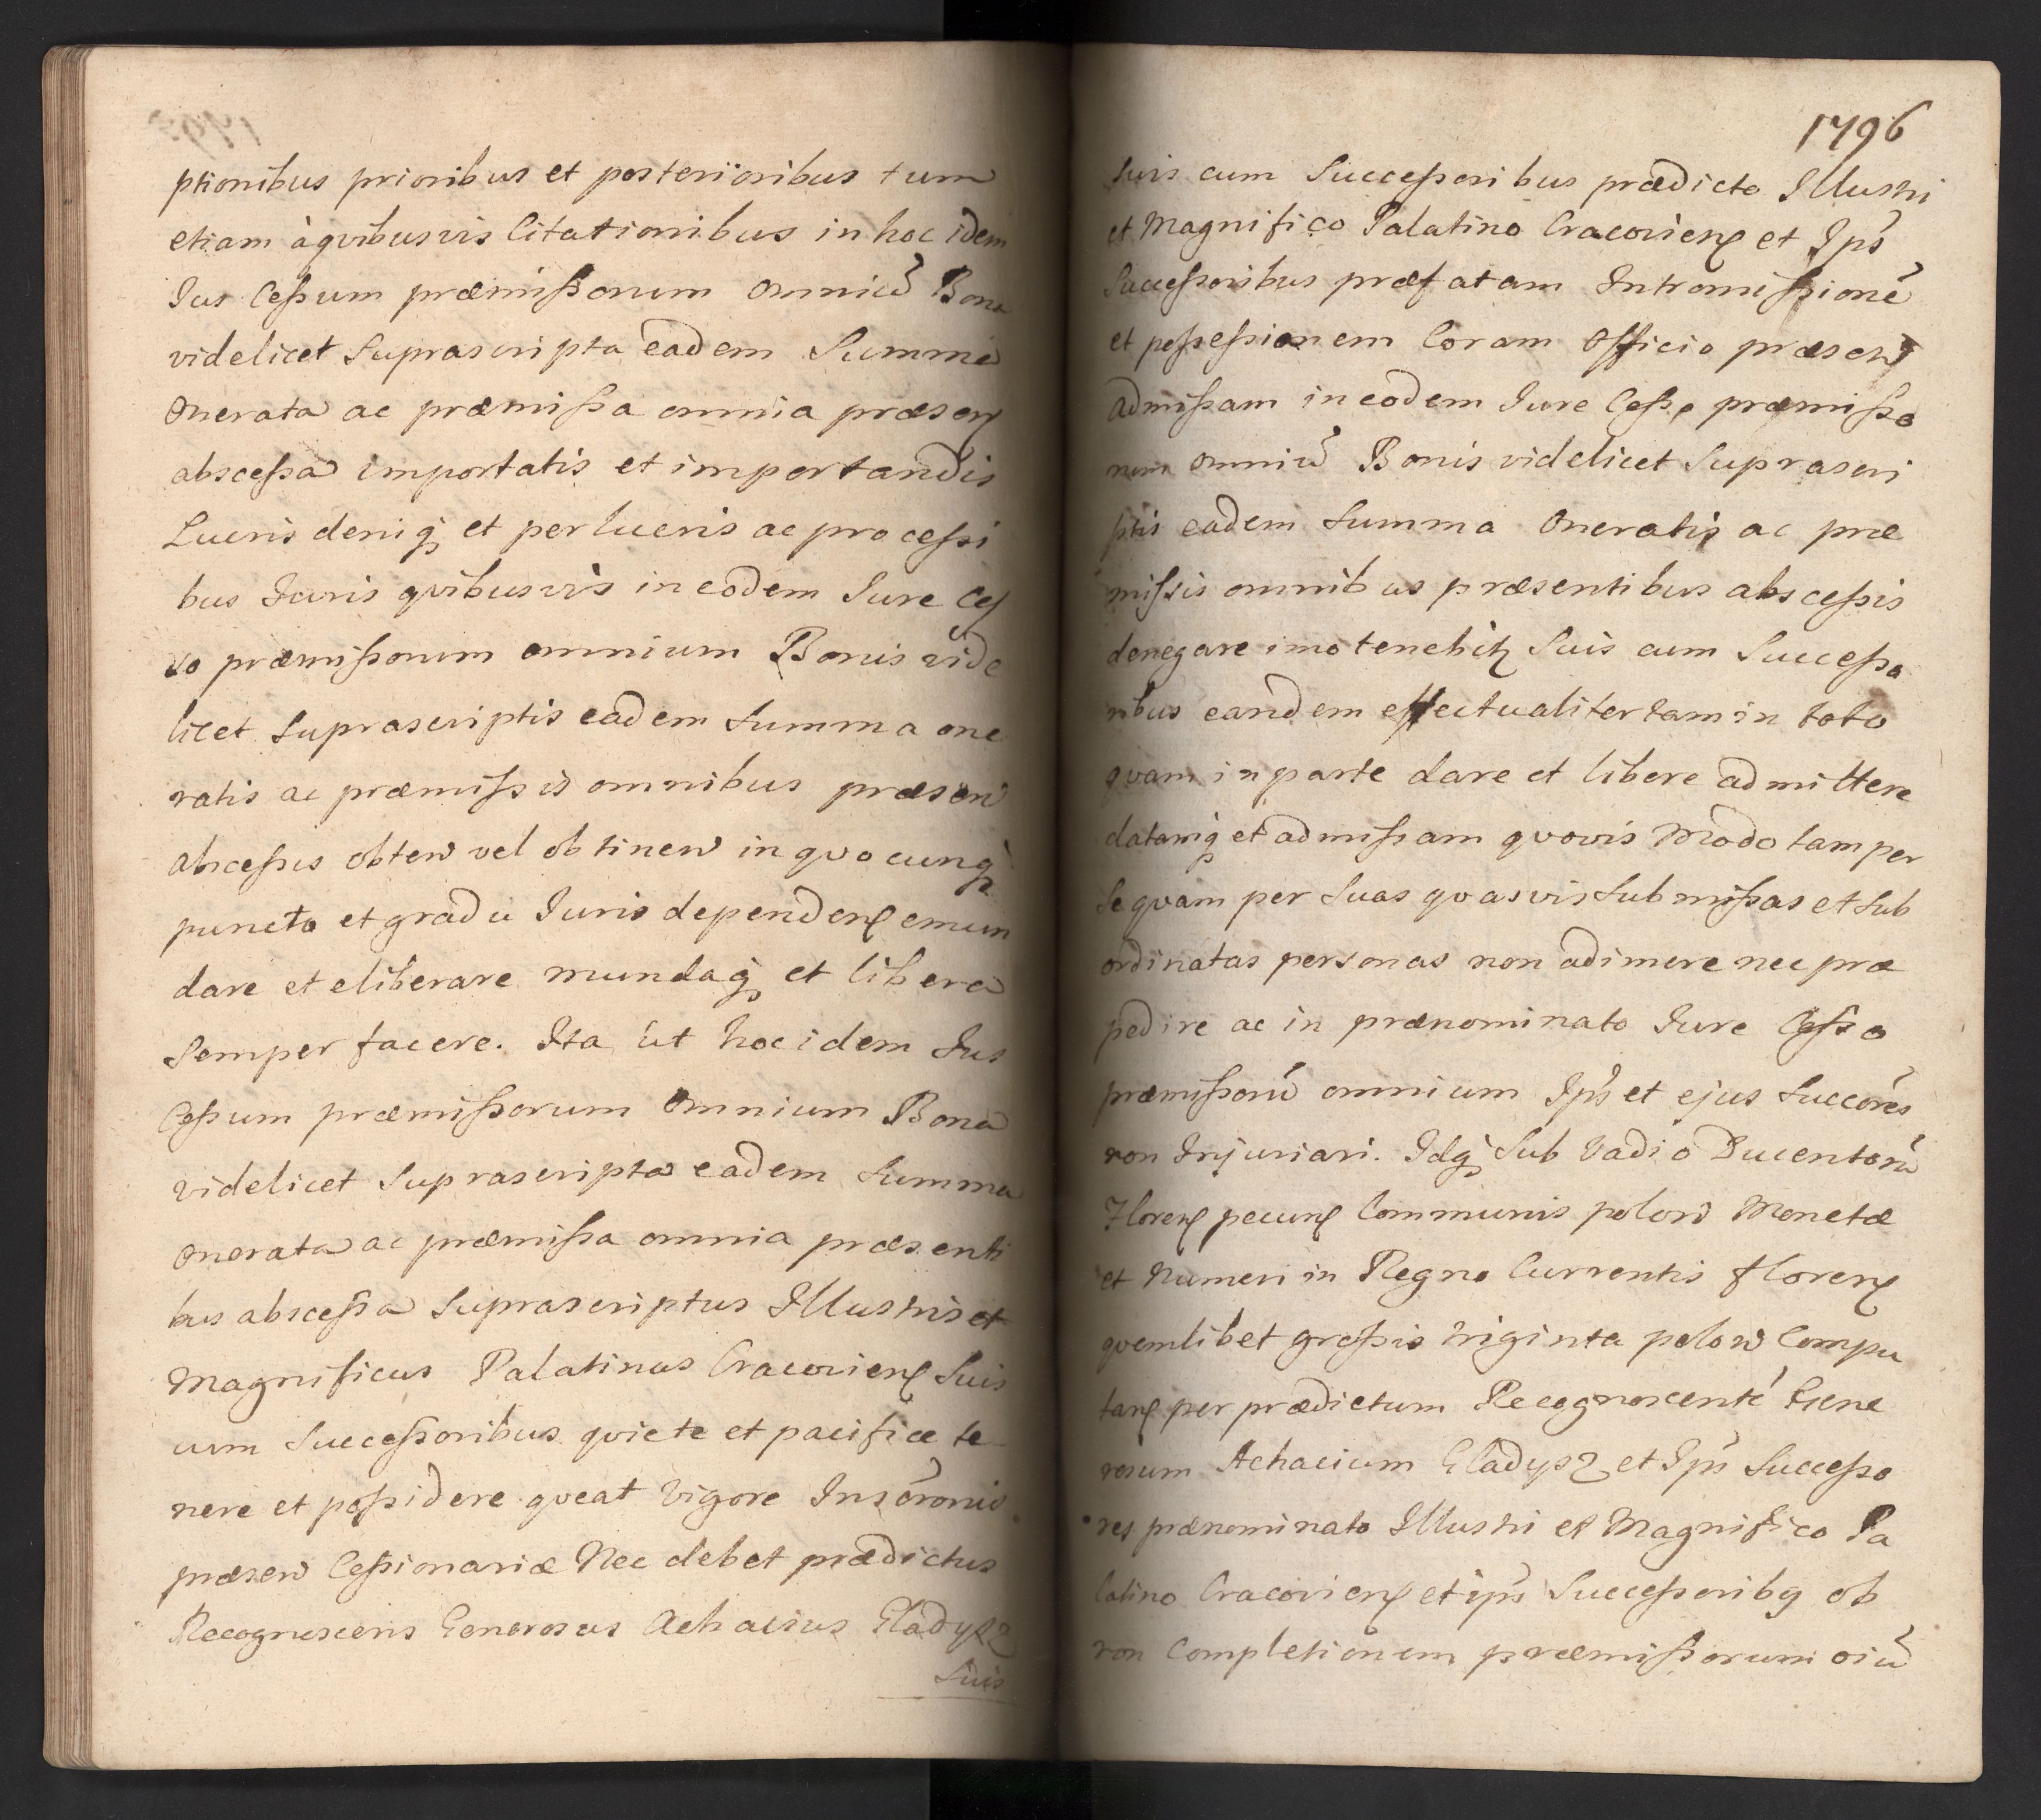 ptionibus prioribus et posterioribus tum
etiam à qvibusvis Citationibus in hoc idem
Jus Cessum præmissorum omniũ Bona
videlicet Suprascripta eadem Summa
Onerata ac præmissa omnia præsen
abscessa importatis et importandis
Lucris deniq et perlucris ac processi
bus Juris qvibusvis in eodem Jure Ces
so præmissorum omnium Bonis vide
licet Suprascriptis eadem Summa one
ratis ac præmissis omnibus præsen
abscessis obten vel obtinen in qvocunq
puncto et gradu Juris dependen emun
dare et eliberare mundaq et libera
Semper facere. Ita ut hoc idem Jus
Cessum præmissorum omnium Bona
videlicet Suprascripta eadem Summa
Onerata ac præmissa omnia præsenti
bus abscessa Suprascriptus Illustris et
Magnificus Palatinus Cracovien Suis
cum Successoribus qviete et pacifice te
nere et possidere qveat Vigore Inscrõnis
præsen Cessionariæ Nec debet prædictus
Recognoscens Generosus Achacius Gladysz
Suis
1796
Suis cum Successoribus prædicto Illustri
et Magnifico Palatino Cracovien et Ips
Successoribus præfatam Intromissionẽ
et possessionem Coram Officio præsen
admissam in eodem Jure Cesso præmisso
rum omniũ Bonis videlicet Suprascri
ptis eadem Summa Oneratis ac præ
missis omnibus præsentibus abscessis
denegare imo tenebit Suis cum Successo
ribus eandem effectualiter tam in toto
qvam in parte dare et libere admittere
datamq et admissam qvovis Modo tam per
Se qvam per Suas qvasvis Submissas et Sub
ordinatas personas non adimere nec præ
pedire ac in prænominato Jure Cesso
præmissorũ omnium Ips et ejus Succores
non Injuriari. Idq Sub Vadio Ducentorũ
Floren pecun Communis polon Monetæ
et Numeri in Regno Currentis floren
qvemlibet grossis triginta polon Compu
tan per prædictum Recognoscentẽ Gene
rosum Achacium Gladysz et Ips Successo
res prænominato Illustri et Magnifico Pa
latino Cracovien et ips Successoribq ob
non Completionem præmissorum oiũ